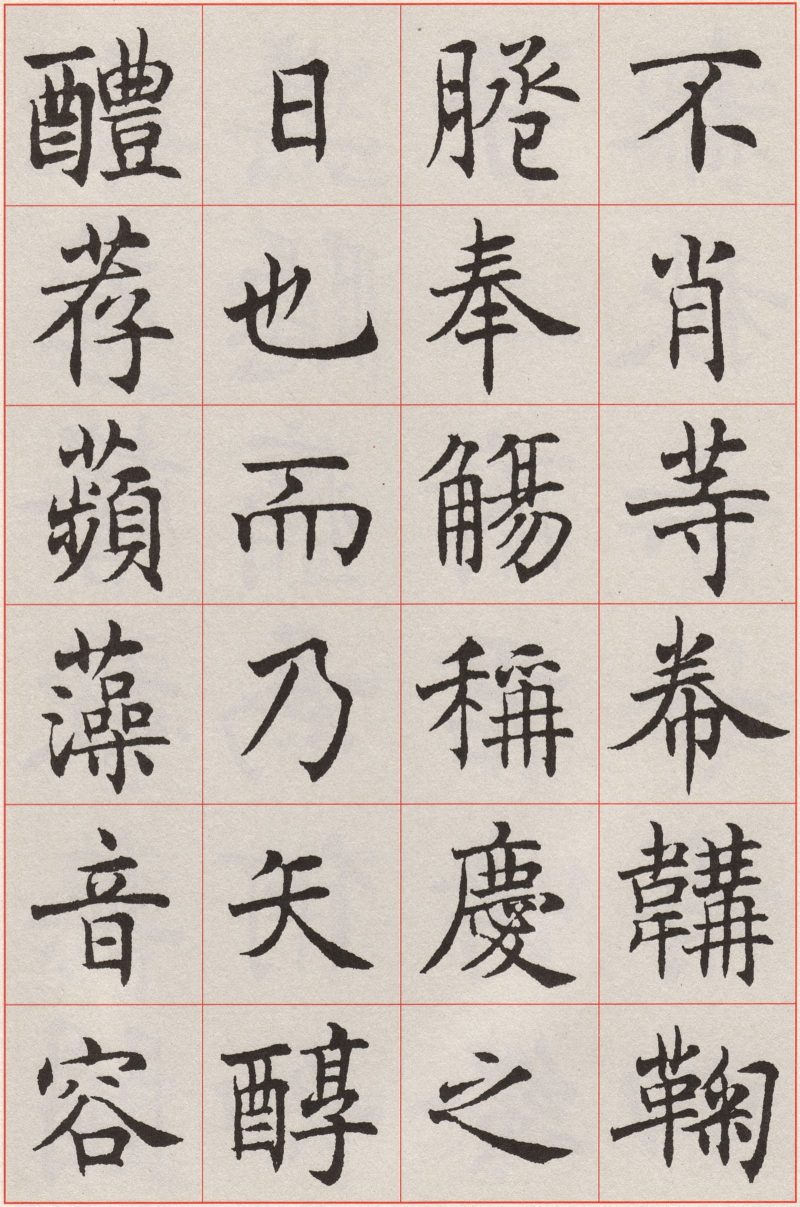 不肖等帣韝鞠
𦛨奉觴稱慶之
日也而乃矢醇
醴荐蘋藻音容